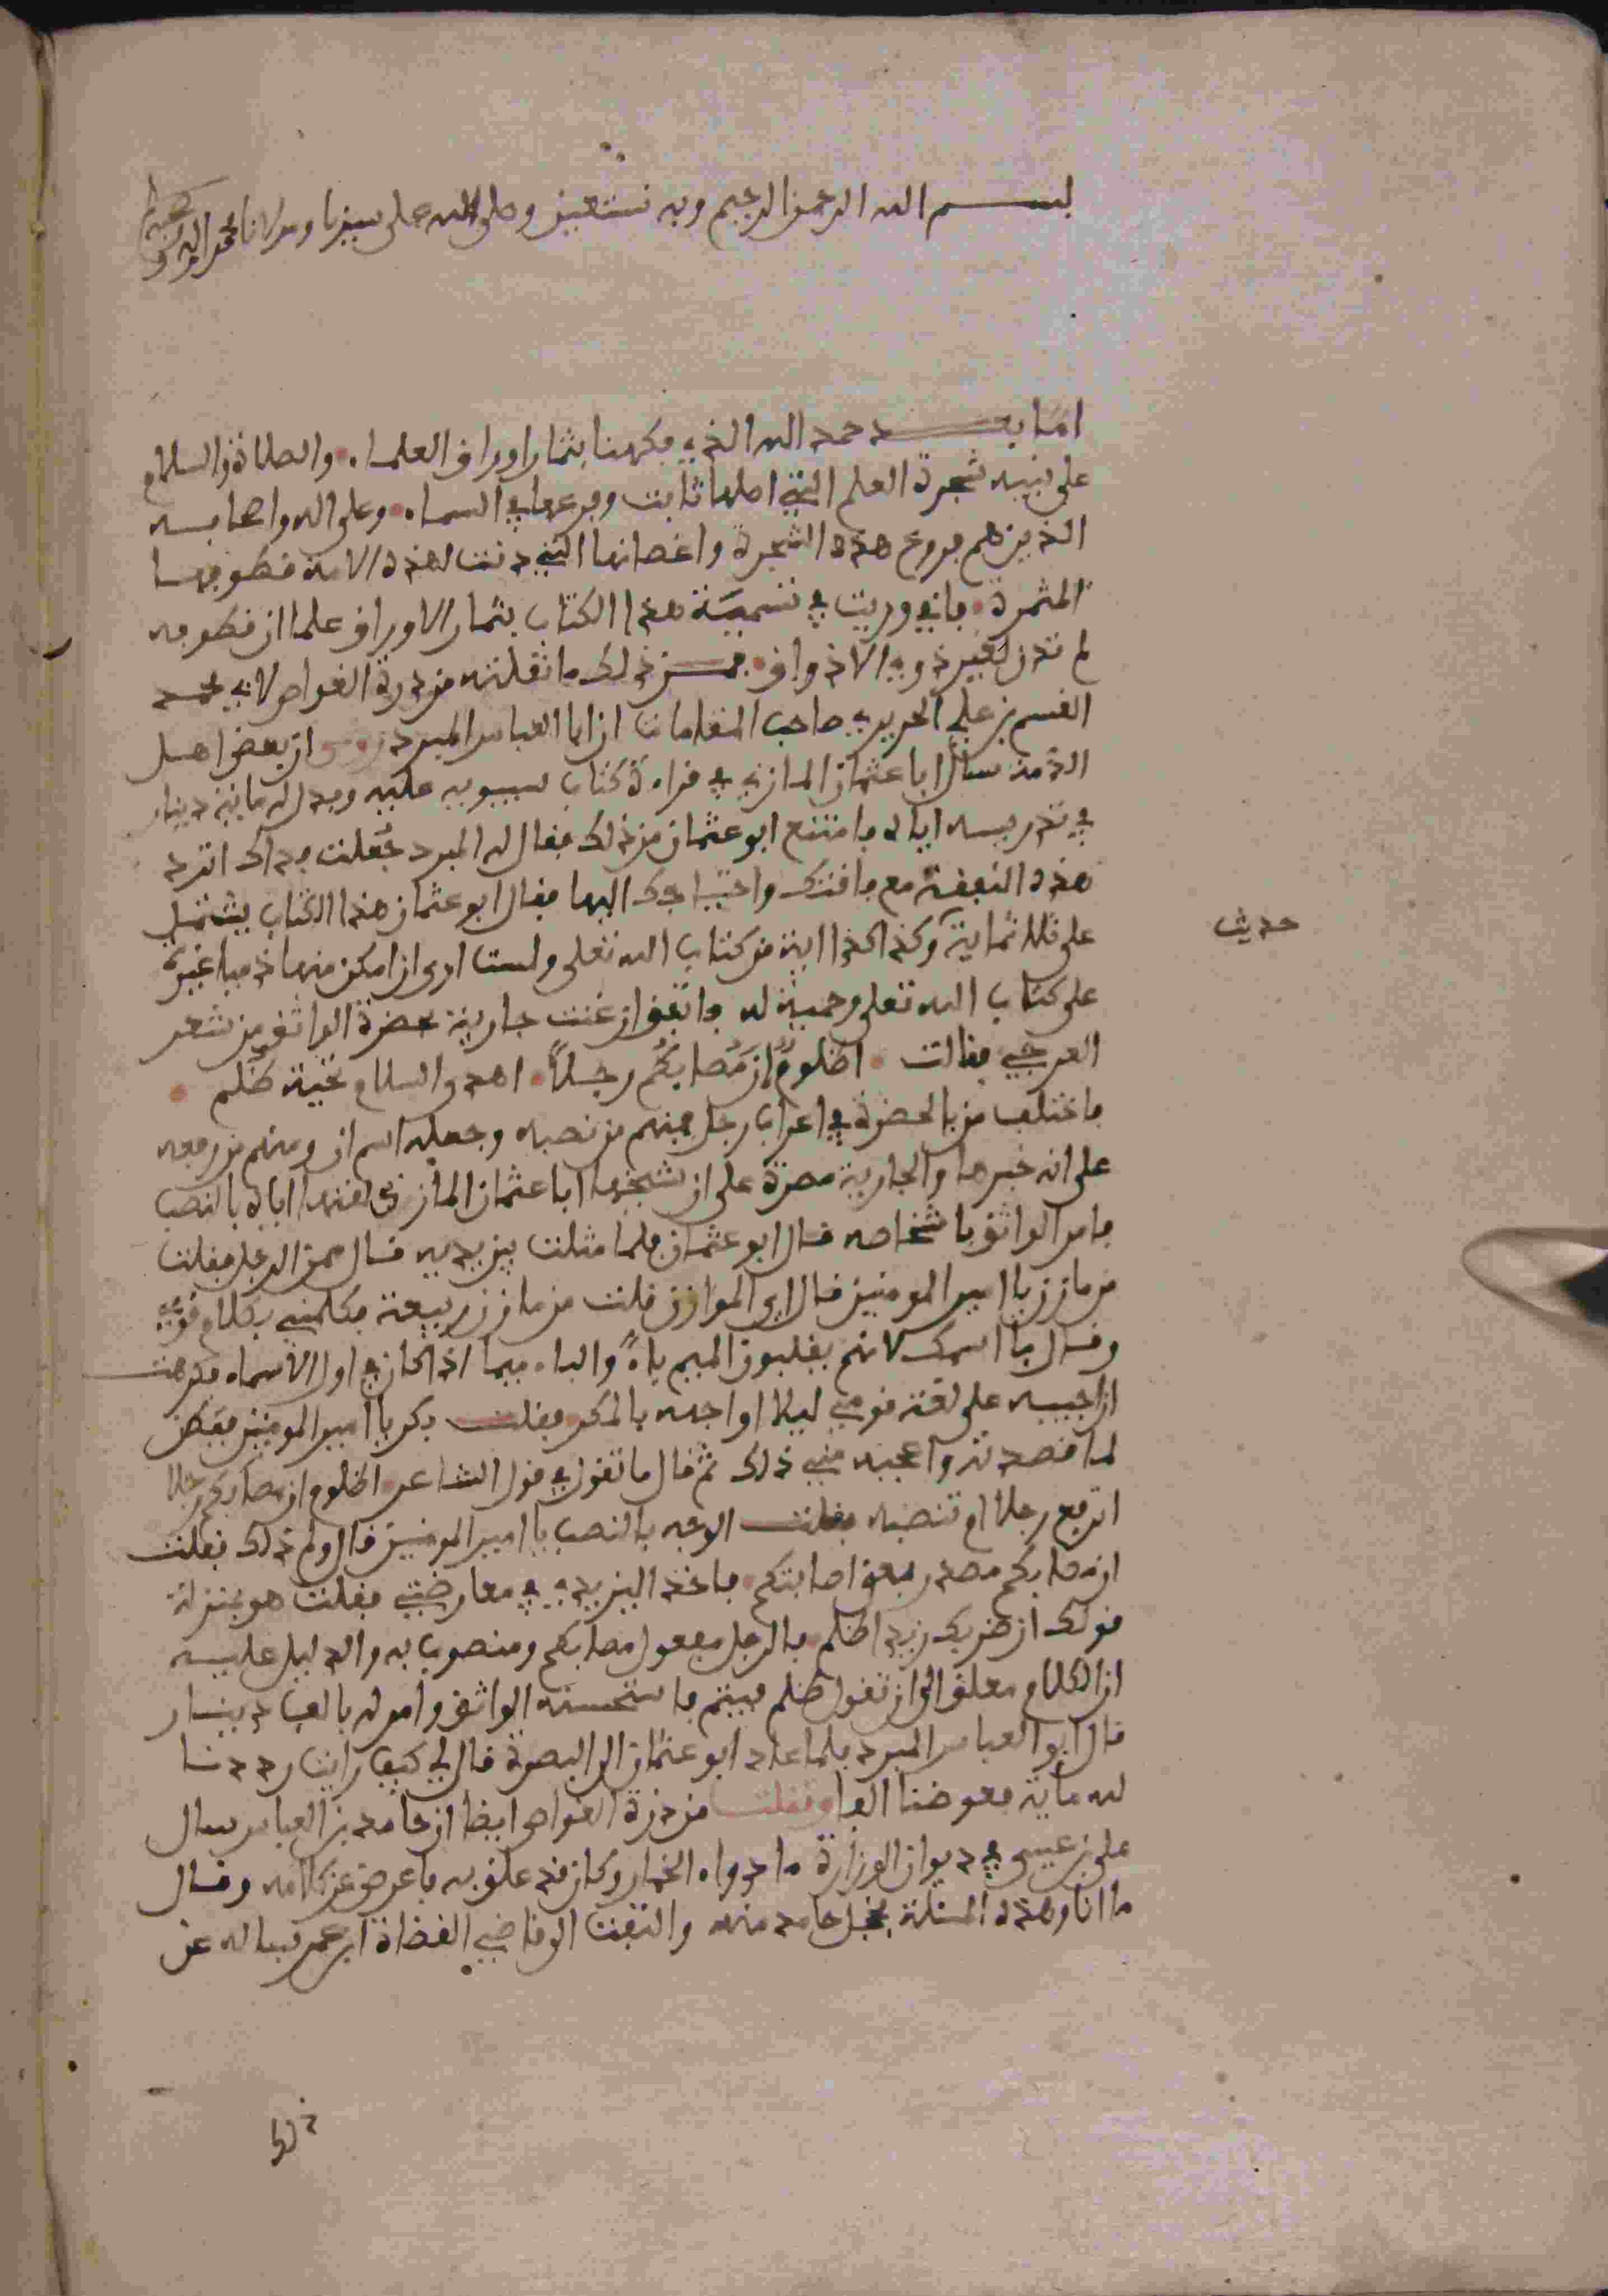 بسم الله الرحمن الرحيم وبه نستعين وصلى الله على سيدنا ومولانا محمد وآله وصحبه
اما بعد حمد الله الذي فكهنا بثمار اوراق العلماء والصلاة والسلام
على نبيه شجرة العلم التي اصلها ثابت وفرعها في السماء وعلى اله واصحابه
الذين هم فروع هذه الشجرة واغصانها التي دنت لهذه الامة قطوفها
المثمرة فاني وريت في تسمية هذا الكتاب بثمار الاوراق علما ان قطوفه
لم تدن لغير ذوي الاذواق فمن ذلك ما نقلته من درة الغواص لابي محمد
القسم بن علي الحريري صاحب المقامات ان ابا العباس المبرد روى ان بعض اهل
الذمة سأل ابا عثمان المازني في قراءة كتاب سيبويه عليه وبدل له ماية دينار
في تدريسه اياه فامتنع ابو عثمان من ذلك فقال له المبرد جعلت فداك اترد
هذه النفقة مع فاقتك واحتياجك اليها فقال ابو عثمان هذا الكتاب يشتمل
على ثلاثماية وكذا كذا اية من كتاب الله تعلى ولست ارى ان امكن منها ذميا غيرة
حديث
على كتاب الله تعلى وحمية له فاتفق ان غنت جارية بحضرة الواثق من شعر
العرجي فقالت اظلوم ان مصابكم رجلا اهدى السلام تحية ظلم
فاختلف من بالحضرة في اعراب رجل فمنهم من نصبه وجعله اسم ان ومنهم من رفعه
على انه خبرها والجارية مصرة على ان شيخها ابا عثمان المازني لقنها اياه بالنصب
فامر الواثق باشخاصه قال ابو عثمان فلما مثلت بين يديه قال ممن الرجل فقلت
من مازن يا امير المومنين قال اي الموازن قلت من مازن ربيعة فكلمني بكلام قومي
وقال با اسمك لانهم يقلبون الميم باء والباء ميما اذا كان في اول الاسماء فكرهت
ان اجيبه على لغة قومي ليلا اواجهه بالمكر فقلت بكر يا امير المومنين ففطن
لما قصدته واعجبه مني ذلك ثم قال ما تقول في قول الشاعر اظلوم ان مصابكم رجلا
اترفع رجلا ام تنصبه فقلت الوجه بالنصب يا امير المومنين قال ولم ذلك فقلت
ان مصابكم مصدر بمعنى اصابتكم فاخذ اليزيدي في معارضتي فقلت هو بمنزلة
قولك ان ضربك زيدا ظلم فالرجل مفعول مصابكم ومنصوب به والدليل عليه
ان الكلام معلق الى ان تقول ظلم فيتم فاستحسنه الواثق وامر له بالف دينار
قال ابو العباس المبرد فلما عاد ابو عثمان الى البصرة قال لي كيف رايت رددنا
لله ماية فعوضنا الفا ونقلت من درة الغواص ايضا ان حامد بن العباس سال
علي بن عيسى في ديوان الوزارة ما دواء الخمار وكان قد علق به فاعرض عن كلامه وقال
ما انا وهذه المسئلة فخجل حامد منه والتفت الى قاضي القضاة ابي عمر فساله عن
ذلك